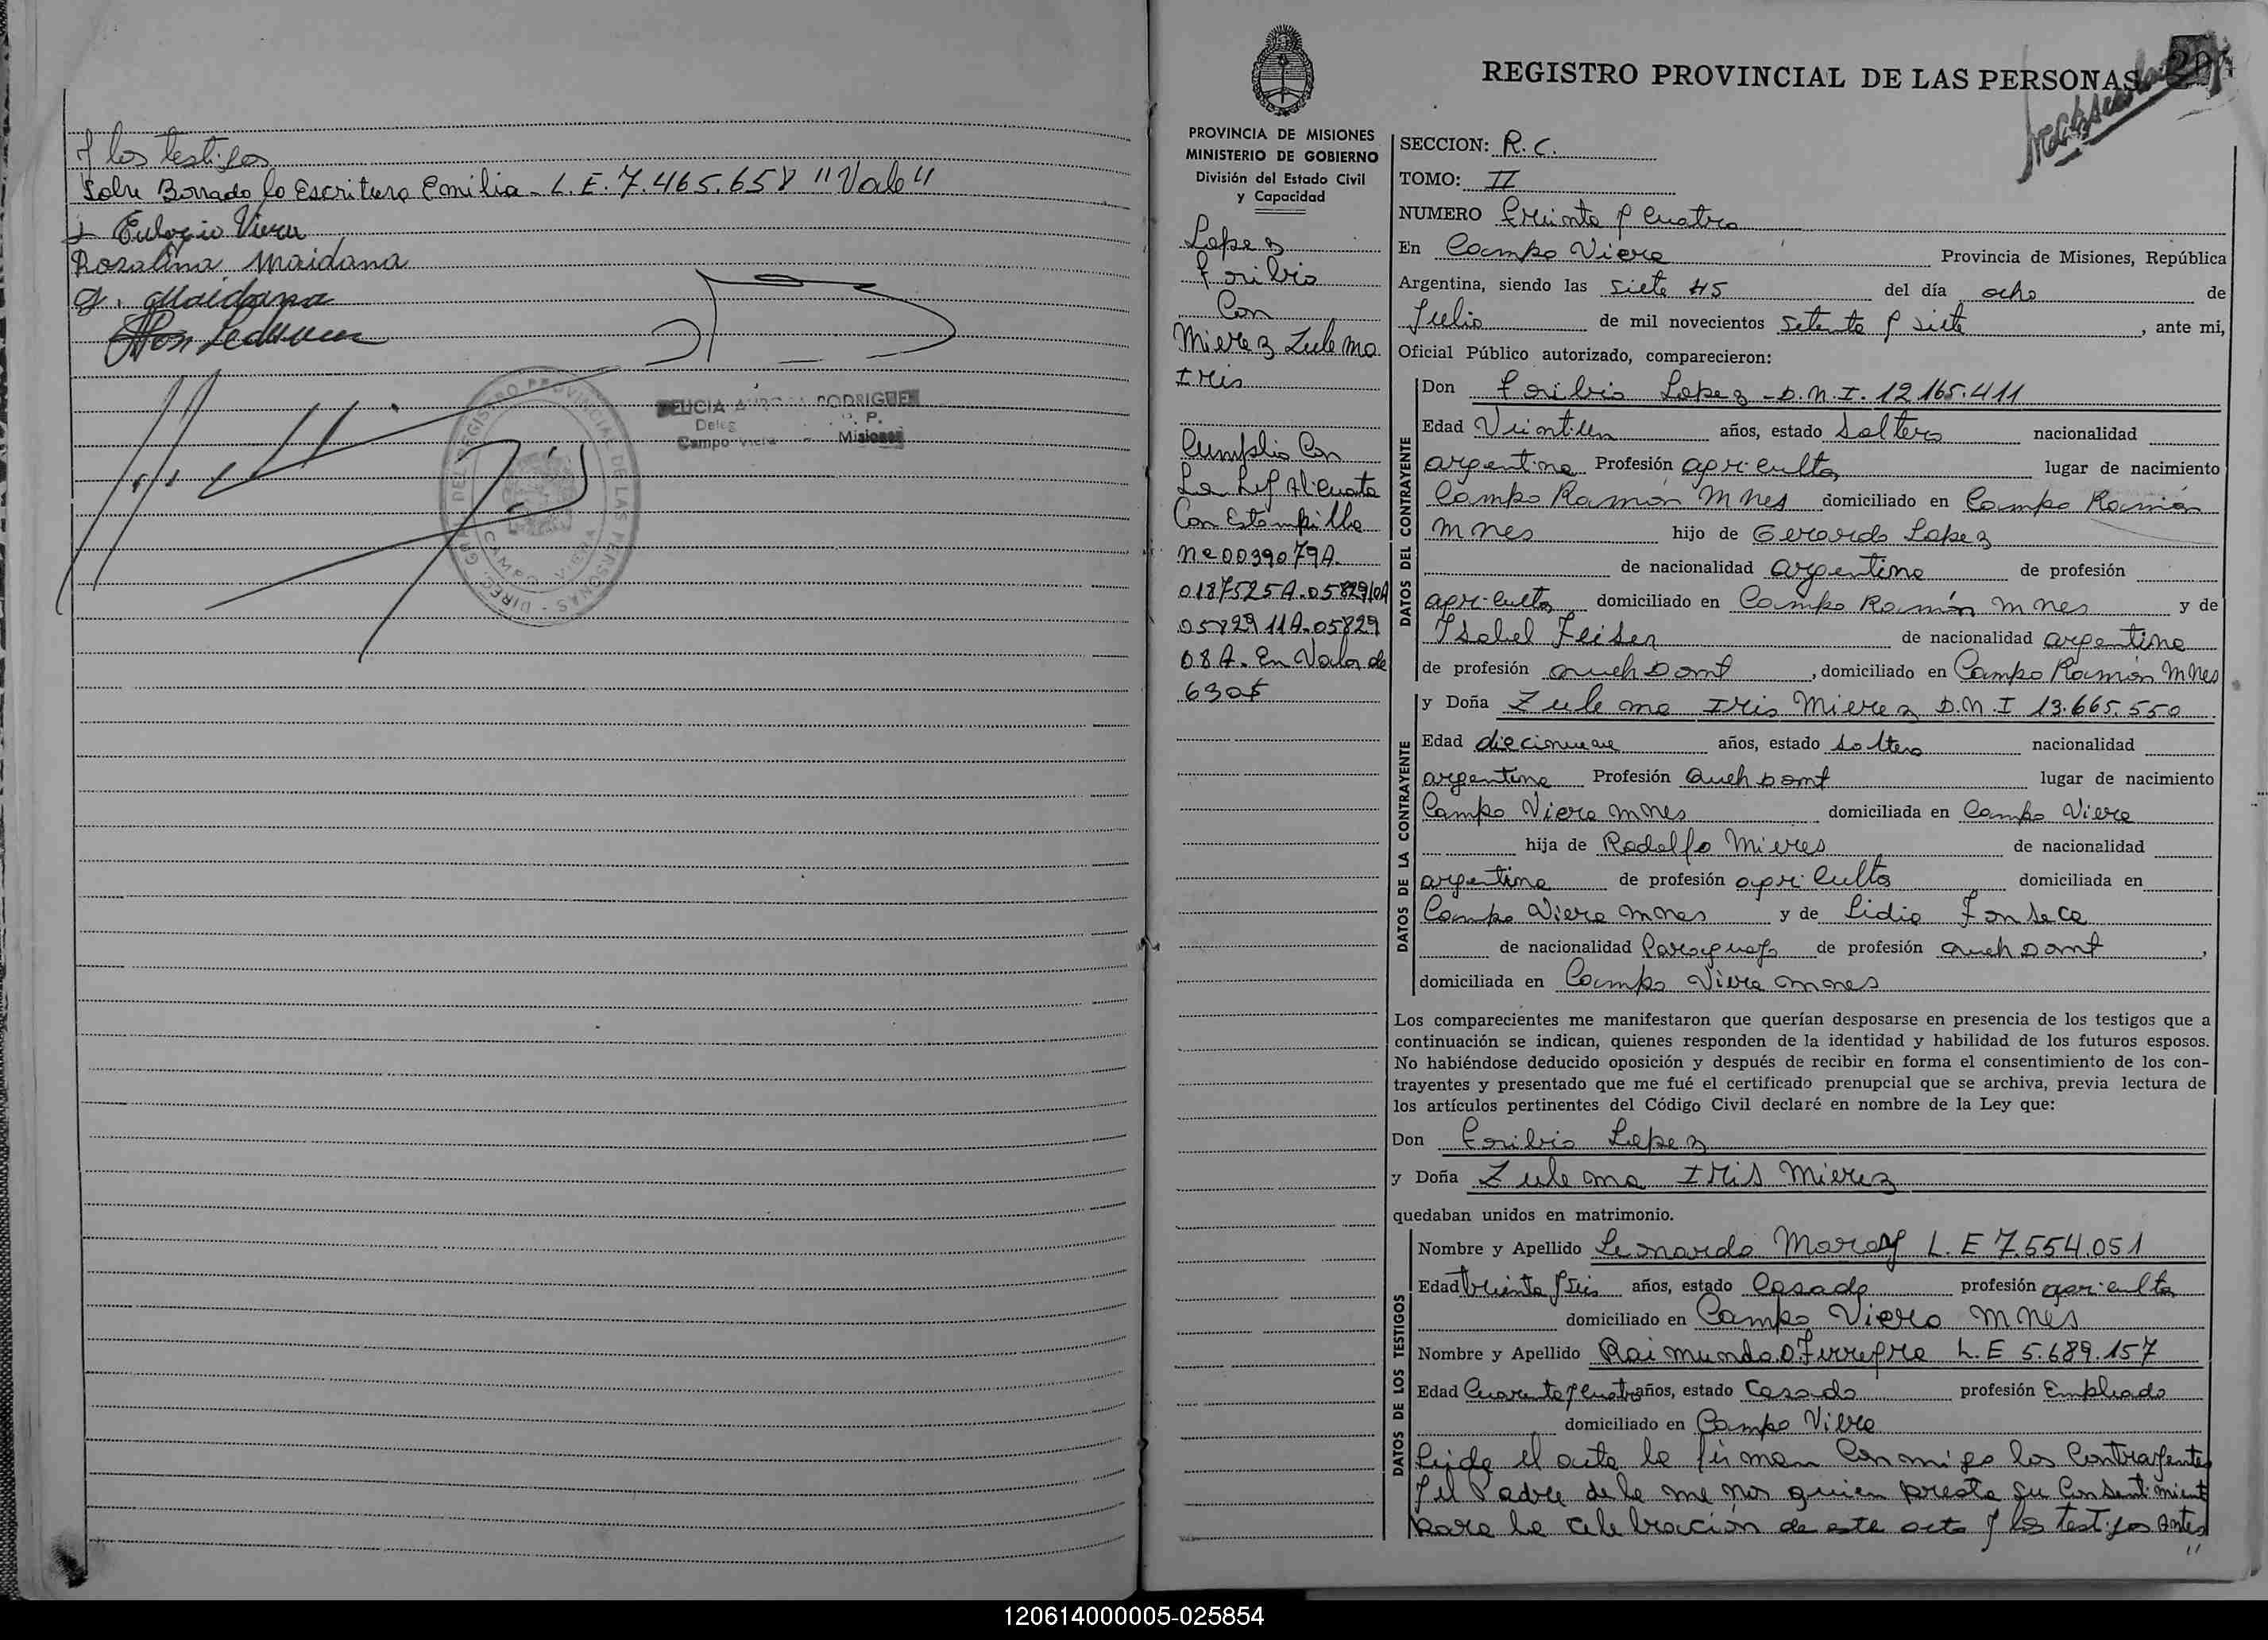 y los testigos
Sobre Borrado la Escritura Emilia - L. E. 7.465.658 "Vale"
Eulogio Viera
Rozalina Maidana
Maidana
REGISTRO PROVINCIAL DE LAS PERSONAS
CAMPO VIERA
Deleg
Campo Viera - Misiones
REGISTRO PROVINCIAL DE LAS PERSONAS
PROVINCIA DE MISIONES
MINISTERIO DE GOBIERNO
División del Estado Civil
y Capacidad
Lopez
Toribio
Con
Mierez Zulema
Iris
Cumplio Con
La Ley Alicuota
Con Estampilla
Nº 0039079A.
0187525A. 0582910A
0582911A. 05829
08A. En Valor de
630$
SECCION: R. C.
TOMO: II
NUMERO Treinta y Cuatro
En Campo Viera Provincia de Misiones, República
Argentina, siendo las siete 45 del día ocho de
Julio de mil novecientos setenta y siete, ante mi,
Oficial Público autorizado, comparecieron:
DATOS DEL CONTRAYENTE
Don Toribio Lopez - D.N.I. 12.165.411
Edad Veintiun años, estado Soltero nacionalidad
argentina Profesión agriculto lugar de nacimiento
Campo Ramón Mnes domiciliado en Campo Ramón
Mnes hijo de Gerardo Lopez
de nacionalidad argentina de profesión
agriculto domiciliado en Campo Ramón Mnes y de
Isabel de nacionalidad argentina
de profesión quehDomt, domiciliado en Campo Ramón Mnes
DATOS DE LA CONTRAYENTE
y Doña Zulema Iris Mierez D.N.I 13.665.550
Edad diecinueve años, estado soltera nacionalidad
argentina Profesión quehDomt lugar de nacimiento
Campo Viera Mnes domiciliada en Campo Viera
hija de Rodolfo Mieres de nacionalidad
argentina de profesión agriculto domiciliada en
Campo Viera Mnes y de Lidia Fonseca
de nacionalidad Paraguaya de profesión quehDomt,
domiciliada en Campo Viera Mnes
Los comparecientes me manifestaron que querían desposarse en presencia de los testigos que a
continuación se indican, quienes responden de la identidad y habilidad de los futuros esposos.
No habiéndose deducido oposición y después de recibir en forma el consentimiento de los con-
trayentes y presentado que me fué el certificado prenupcial que se archiva, previa lectura de
los artículos pertinentes del Código Civil declaré en nombre de la Ley que:
Don Toribio Lopez
y Doña Zulema Iris Mierez
quedaban unidos en matrimonio.
DATOS DE LOS TESTIGOS
Nombre y Apellido Leonardo L. E 7.554.051
Edad treinta y seis años, estado Casado profesión agriculto
domiciliado en Campo Viera Mnes
Nombre y Apellido Raimundo O Ferreyra L. E 5.689.157
Edad Cuarenta y Cuatro años, estado Casado profesión Empleado
domiciliado en Campo Viera
Leida el acta la firman Conmigo los Contrayentes
y el Padre de la menor quien presta su Consentimient
para la celebración de este acto y los testigos antes
120614000005-025854